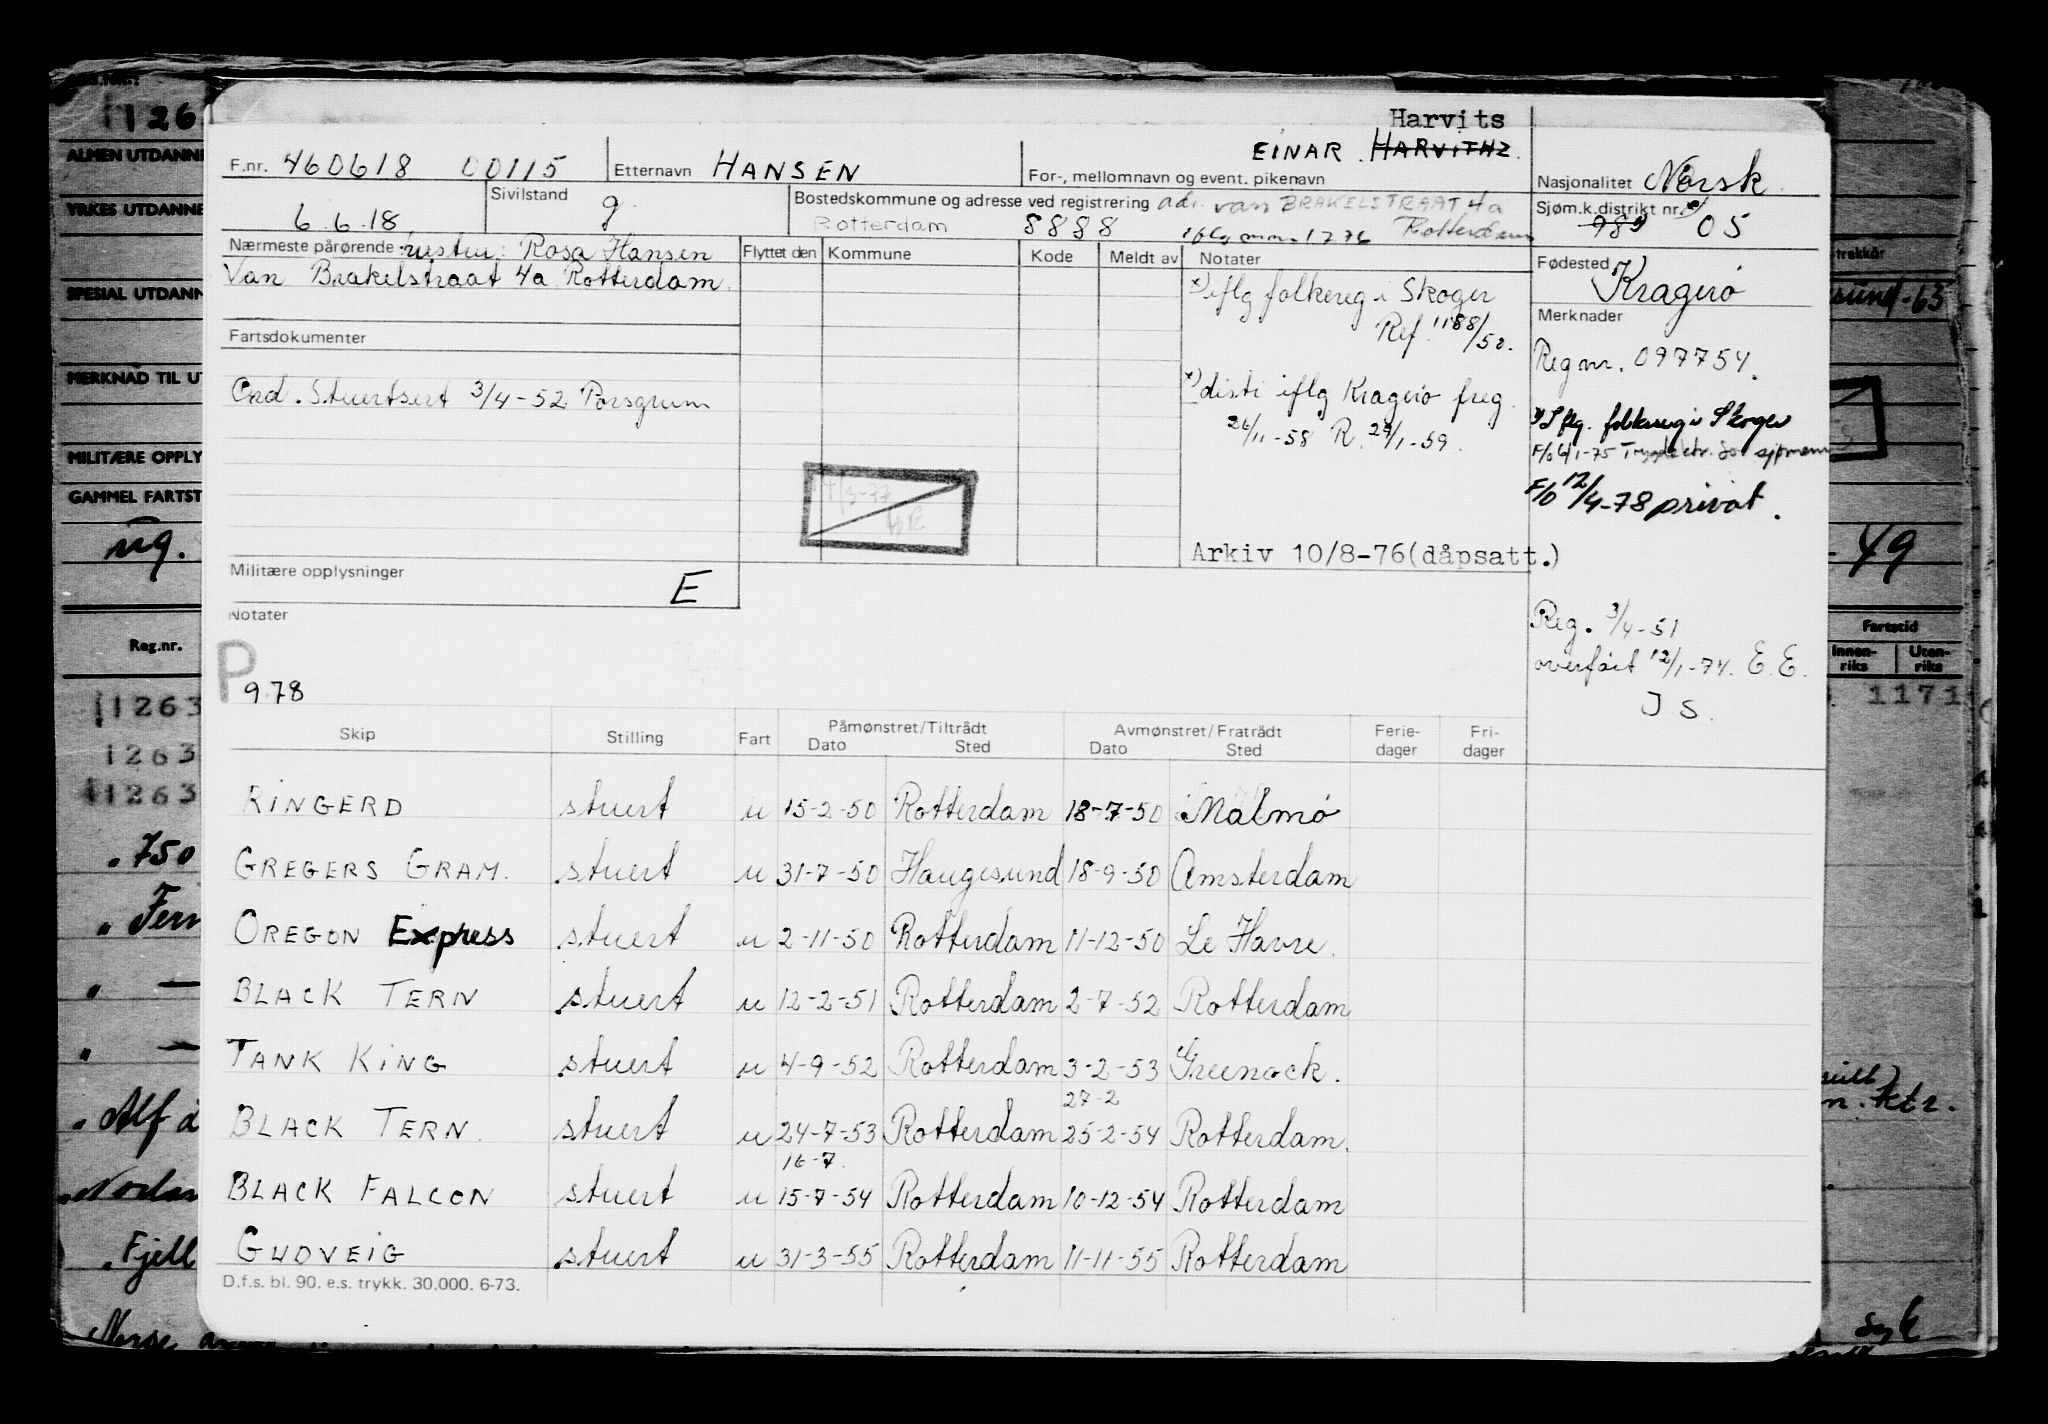 Harvits
F.nr. 460618 00115 Etternavn HANSEN EINAR HARVITHZ
For-, mellomnavn og event. pikenavn
Nasjonalitet Norsk
6.6.18 Sivilstand g Bostedskommune og adresse ved registrering adr. van BRAKELSTRAAT 4a
Rotterdam 8888 iflg mm. 1276 Rotterdam
Sjøm.k.distrikt nr. 989 x) 05
Nærmeste pårørende: hustru: Rosa Hansen
Van Brakelstraat 4a Rotterdam.
Flyttet den Kommune Kode Meldt av Notater
x) iflg folkereg i Skoger
Ref. 1188/50.
x) distr iflg Kragerø freg.
26/11-58 R. 29/1-59.
Arkiv 10/8-76(dåpsatt.)
Fødested Kragerø
Merknader
Reg nr. 097754.
x) Iflg. folkereg i Skoger
F/o 6/1-75 Trygdektr. for sjømenn
F/o 12/4-78 privat.
Reg. 3/4-51
overført 12/1-74. E.E.
J S.
Fartsdokumenter
Ord. Stuertsert 3/4-52 Porsgrunn
Militære opplysninger E
Notater
P
9.78
Skip Stilling Fart Påmønstret/Tiltrådt Dato Sted Avmønstret/Fratrådt Dato Sted Ferie-dager Fri-dager
RINGERD stuert u 15-2-50 Rotterdam 18-7-50 Malmø
GREGERS GRAM. stuert u 31-7-50 Haugesund 18-9-50 Amsterdam
OREGON Express stuert u 2-11-50 Rotterdam 11-12-50 Le Havre.
BLACK TERN stuert u 12-2-51 Rotterdam 2-7-52 Rotterdam
TANK KING stuert u 4-9-52 Rotterdam 3-2-53 Greenock.
27-2
BLACK TERN. stuert u 24-7-53 Rotterdam 25-2-54 Rotterdam.
16-7.
BLACK FALCON stuert u 15-7-54 Rotterdam 10-12-54 Rotterdam
GUDVEIG stuert u 31-3-55 Rotterdam 11-11-55 Rotterdam
D.f.s. bl. 90. e.s. trykk. 30.000. 6-73.
1126
ALMEN UTDANNE
YRKES UTDANNE
SPESIAL UTDANN
MERKNAD TIL UT
MILITÆRE OPPLY
GAMMEL FARTST
ug.
Reg.nr.
11263
1263
11263
750
Fjell
-63
- 49
Fartstid
Innen-riks Uten-riks
1171
ktr.
syk